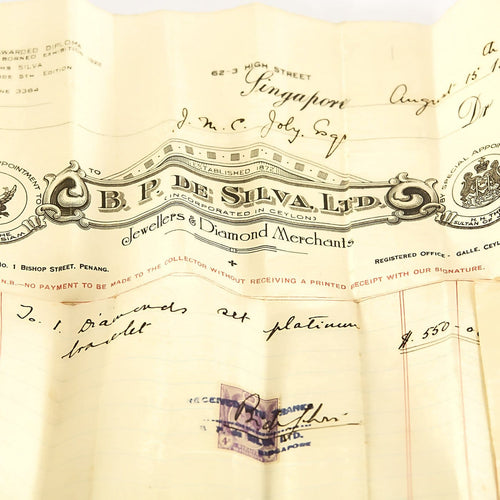 AWARDED DIPLOMA
BORNEO EXHIBITION 1922
SILVA
CODE 5TH EDITION
PHONE 3384
62-3 HIGH STREET
Singapore
August 15
Dr
J. M. C. Joly. Esqr
APPOINTMENT TO
SIAM
TO
ESTABLISHED 1872
B. P. DE SILVA, LTD.
(INCORPORATED IN CEYLON)
Jewellers & Diamond Merchants
BY SPECIAL APPOIN
H. H.
SULTAN
No. 1 BISHOP STREET, PENANG.
REGISTERED OFFICE - GALLE, CEY
N.B.—NO PAYMENT TO BE MADE TO THE COLLECTOR WITHOUT RECEIVING A PRINTED RECEIPT WITH OUR SIGNATURE.
To 1. Diamonds set platinum
bracelet
$. 550-
RECEIVED WITH THANKS
LTD.
SINGAPORE